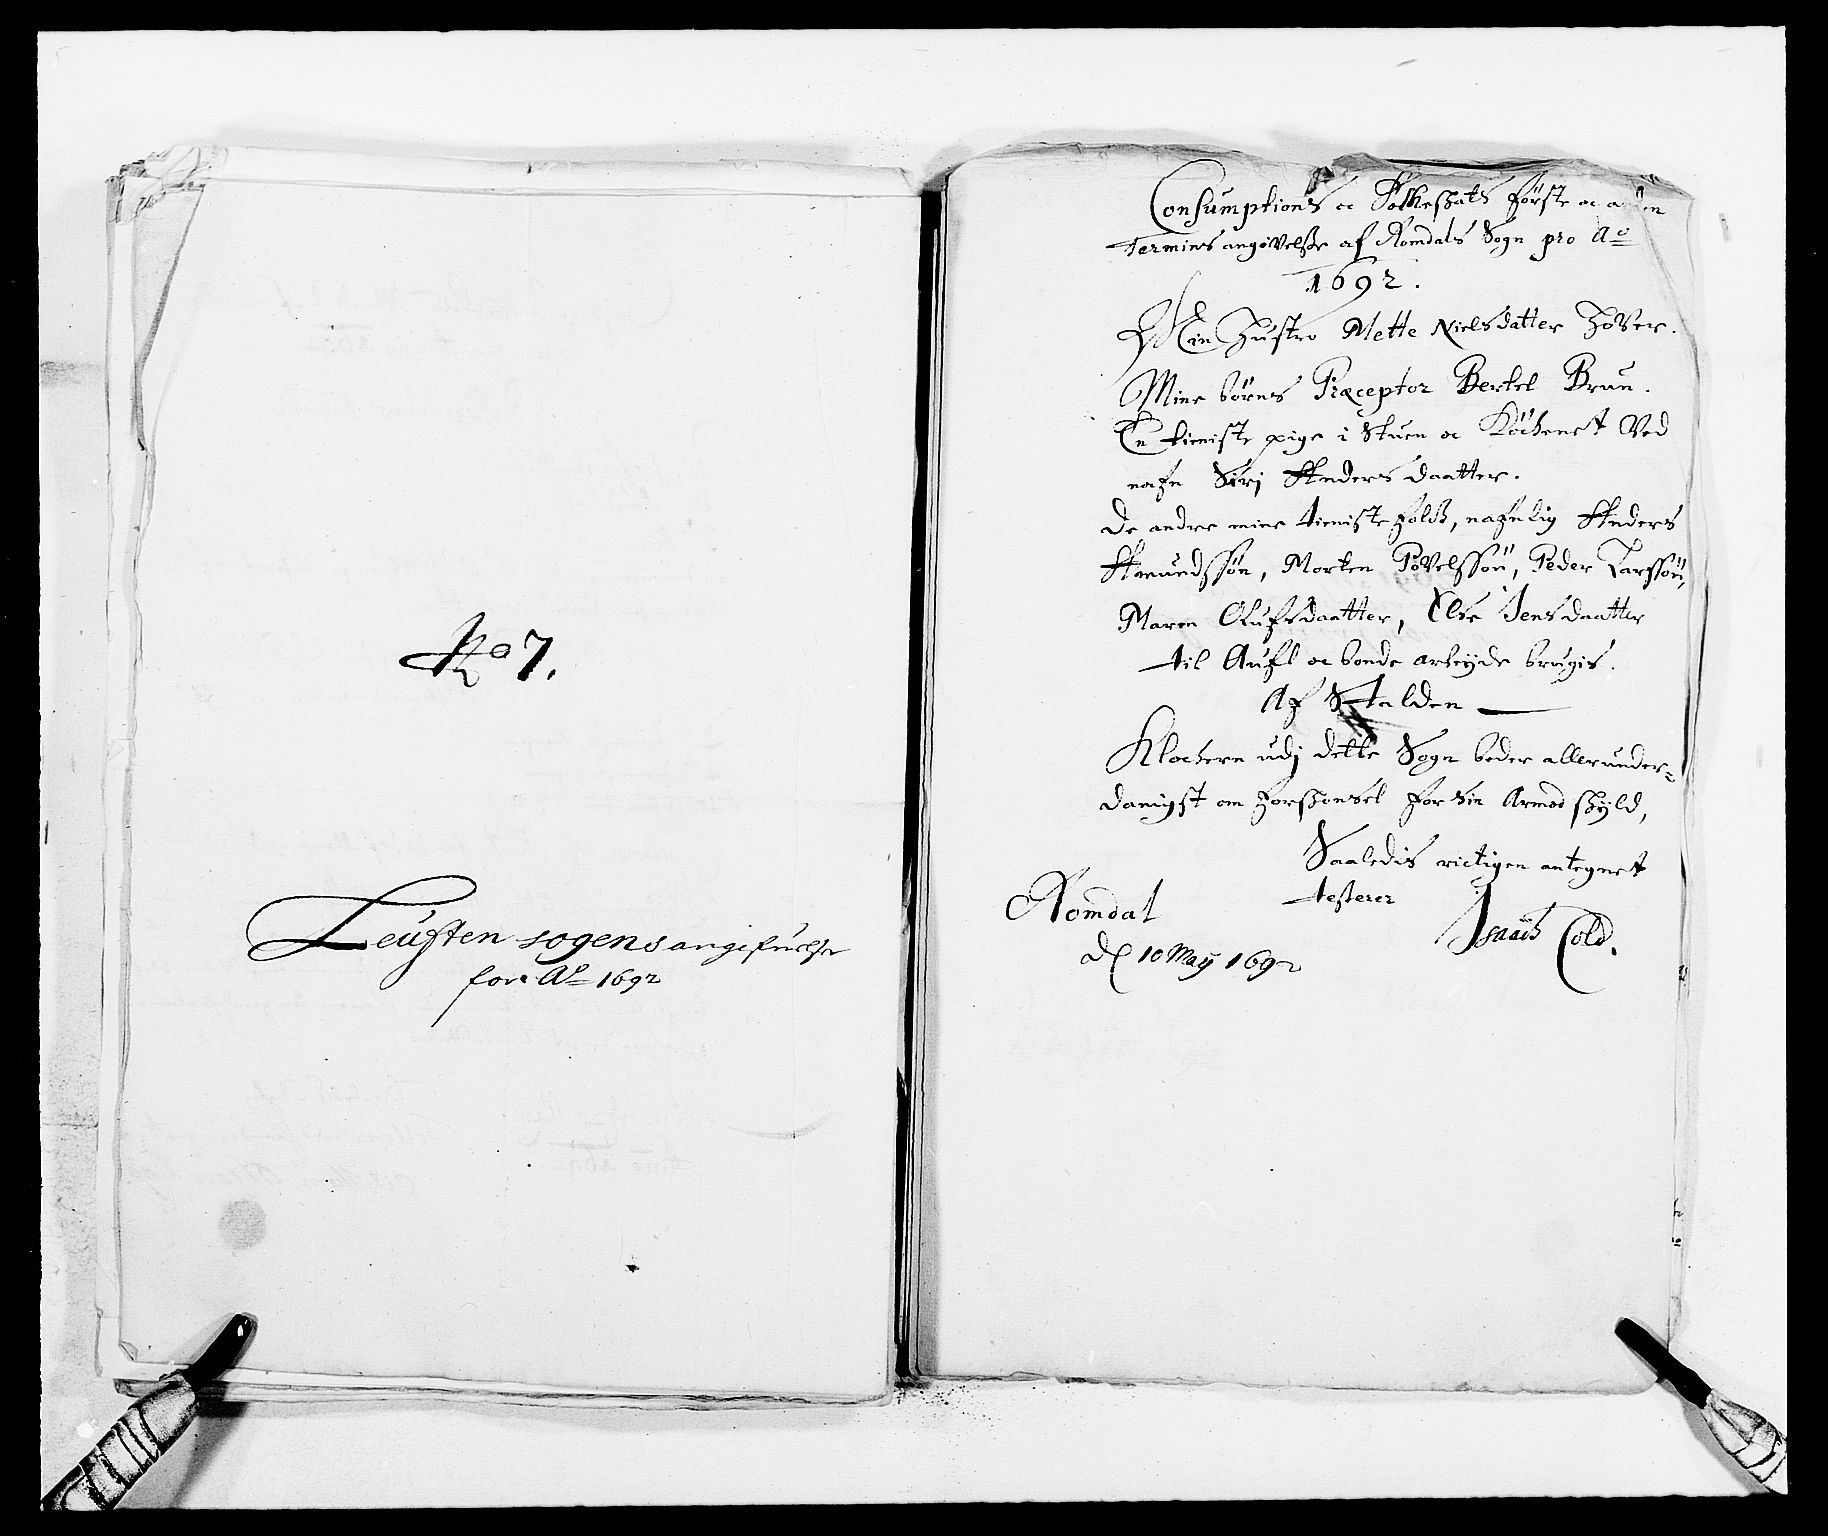 No 7.
Leusten sogens angifuelse
for Ao 1692
Consumptions oc Folkeskats Første oc anden
Termins angivelse af Romdals Sogn pro Ao
1692.
Min Hustro Mette Nielsdatter Høyer.
Mine börns Præceptor Bertel Brun.
En tieniste pige i Stuen oc Köckenet Ved
nafn Siri Anders daatter.
De andre mine tieniste folck, nafnlig Anders
Amundssøn, Morten Povelssön, Peder Larssön,
Maren Olufsdaatter, Else Jensdaatter
til Aufl oc bonde arbeyde brugis.
Af Stalden
Klockern udj dette Sogn beder allerunder=
danigst om forskonsel for sin Armod skyld,
Saaledis rictigen antegnet
testerer
Romdal
d 10 May 1692
Isaach Cold.